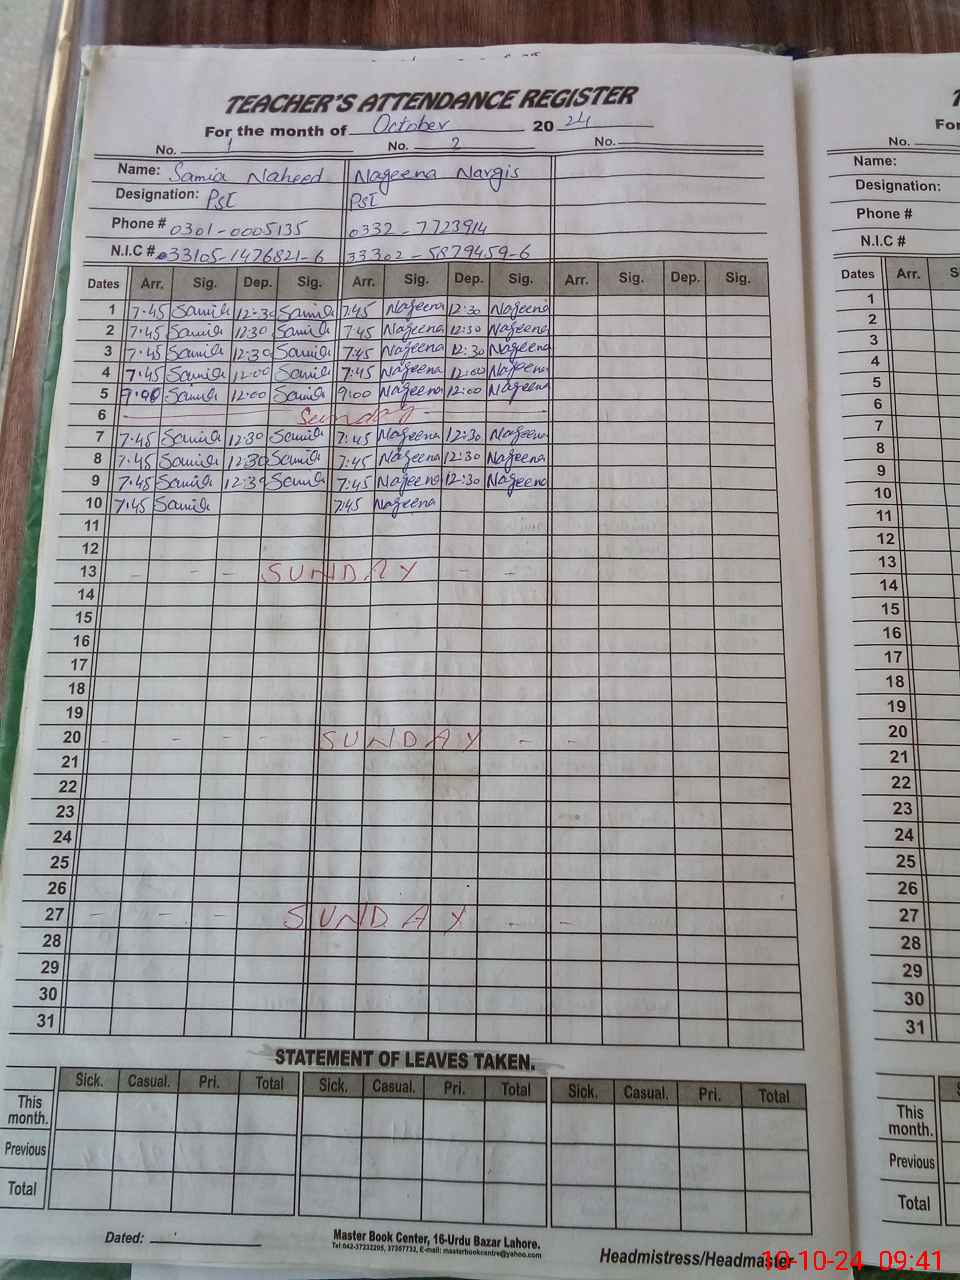 TEACHER'S ATTENDANCE REGISTER
For the month of October 2024
No. 1 No. 2 No.
Name: Samia Naheed Nageena Nargis
Designation: PST PST
Phone # 0301-0005135 0332-7723914
N.I.C # 33105-1476821-6 33302-5879459-6
Dates Arr. Sig. Dep. Sig. Arr. Sig. Dep. Sig. Arr. Sig. Dep. Sig.
1 7:45 Samia 12:30 Samia 7:45 Nageena 12:30 Nageena
2 7:45 Samia 12:30 Samia 7:45 Nageena 12:30 Nageena
3 7:45 Samia 12:30 Samia 7:45 Nageena 12:30 Nageena
4 7:45 Samia 12:00 Samia 7:45 Nageena 12:00 Nageena
5 9:00 Samia 12:00 Samia 9:00 Nageena 12:00 Nageena
6 Sunday
7 7:45 Samia 12:30 Samia 7:45 Nageena 12:30 Nageena
8 7:45 Samia 12:30 Samia 7:45 Nageena 12:30 Nageena
9 7:45 Samia 12:30 Samia 7:45 Nageena 12:30 Nageena
10 7:45 Samia 7:45 Nageena
11
12
13 - - - SUNDAY - -
14
15
16
17
18
19
20 - - - - SUNDAY - -
21
22
23
24
25
26
27 - - - - SUNDAY - -
28
29
30
31
STATEMENT OF LEAVES TAKEN.
Sick. Casual. Pri. Total Sick. Casual. Pri. Total Sick. Casual. Pri. Total
This month.
Previous
Total
Dated:
Master Book Center, 16-Urdu Bazar Lahore.
Headmistress/Headmaster
No.
Name:
Designation:
Phone #
N.I.C #
Dates Arr.
1
2
3
4
5
6
7
8
9
10
11
12
13
14
15
16
17
18
19
20
21
22
23
24
25
26
27
28
29
30
31
This month.
Previous
Total
10-10-24 09:41